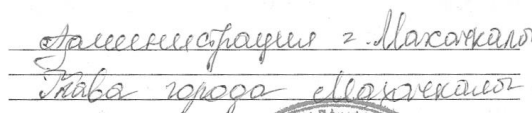 Администрация г. Махачкалы
Глава города Махачкалы